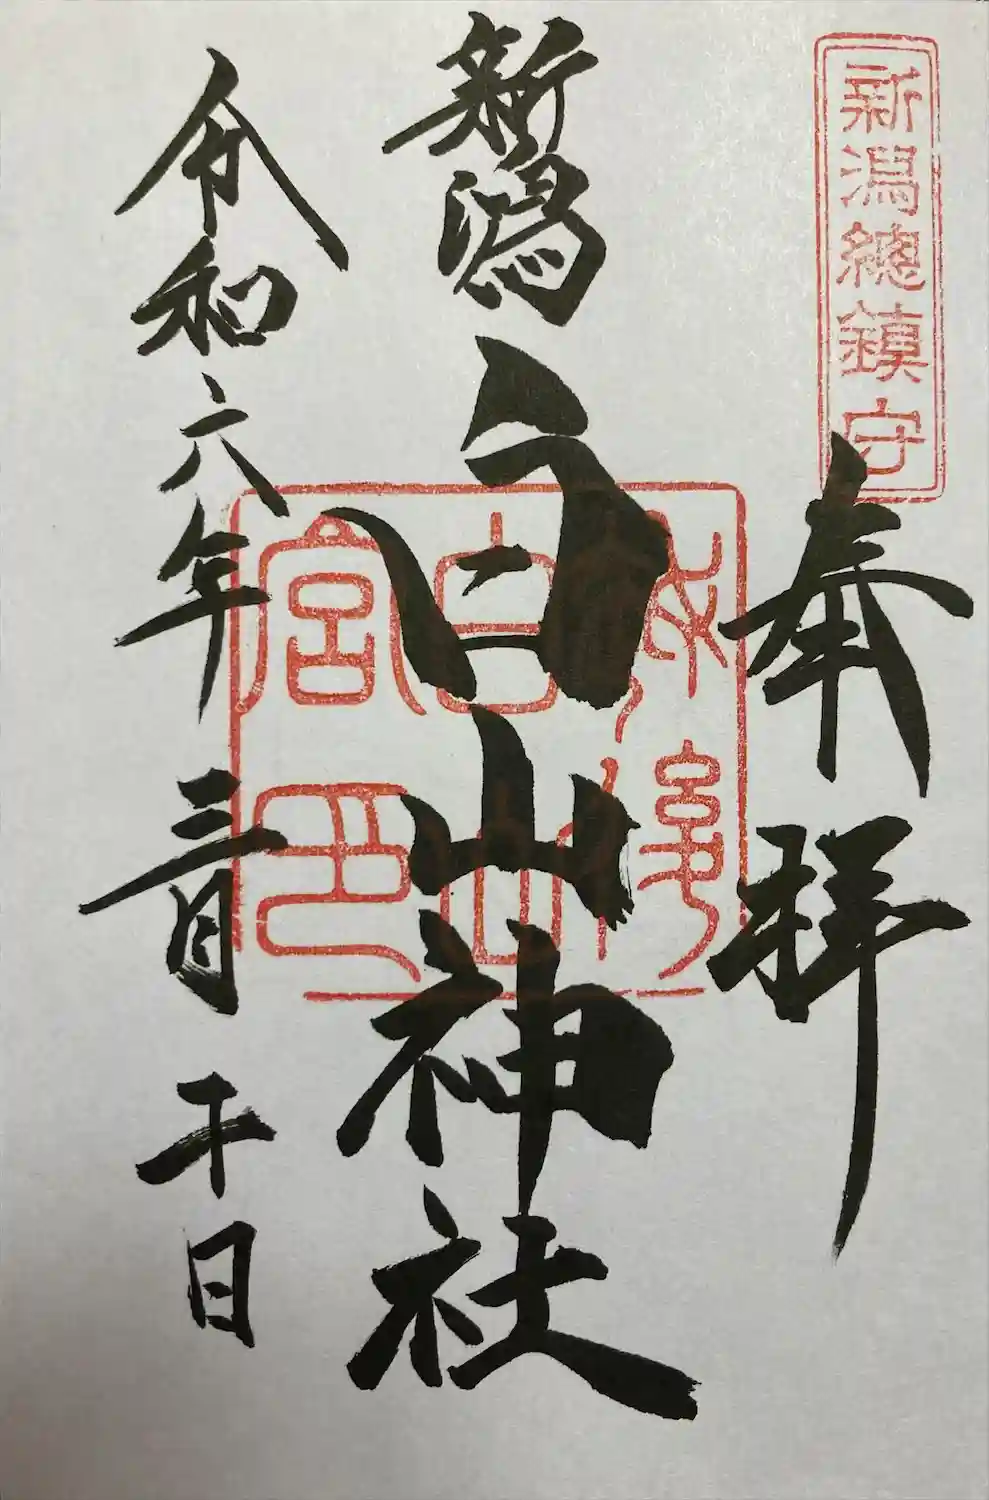 新潟總鎮守
奉拝
新潟白山神社
越後
白山
宮印
令和六年三月十日